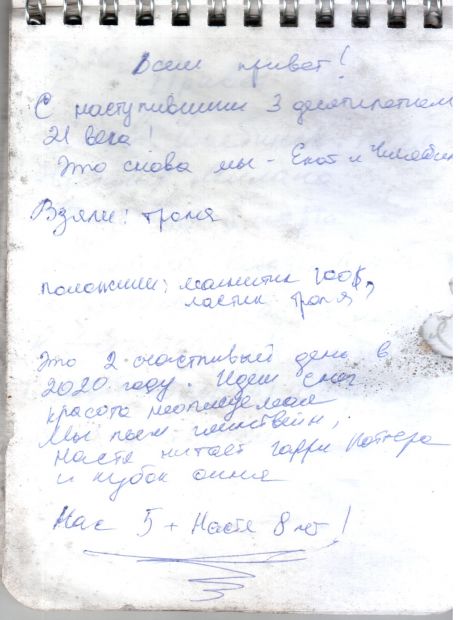 Всем привет!
С наступившим 3 десятилетием
21 века!
Это снова мы - Енот и
Взяли: троля
положили: магнитик 100$,
ластик троля
Это 2 счастливый день в
2020 году. Идет снег
красота неописуемая
Мы пьем глинтвейн,
Настя читает Гарри Поттера
и кубок огня
Нас 5 + Настя 8 лет!